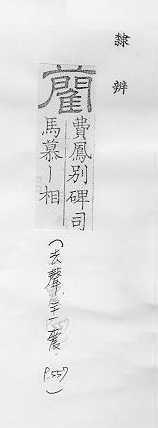 隸辨
藺
費鳳別碑司
馬慕丨相
(去聲二十一震 P.557)